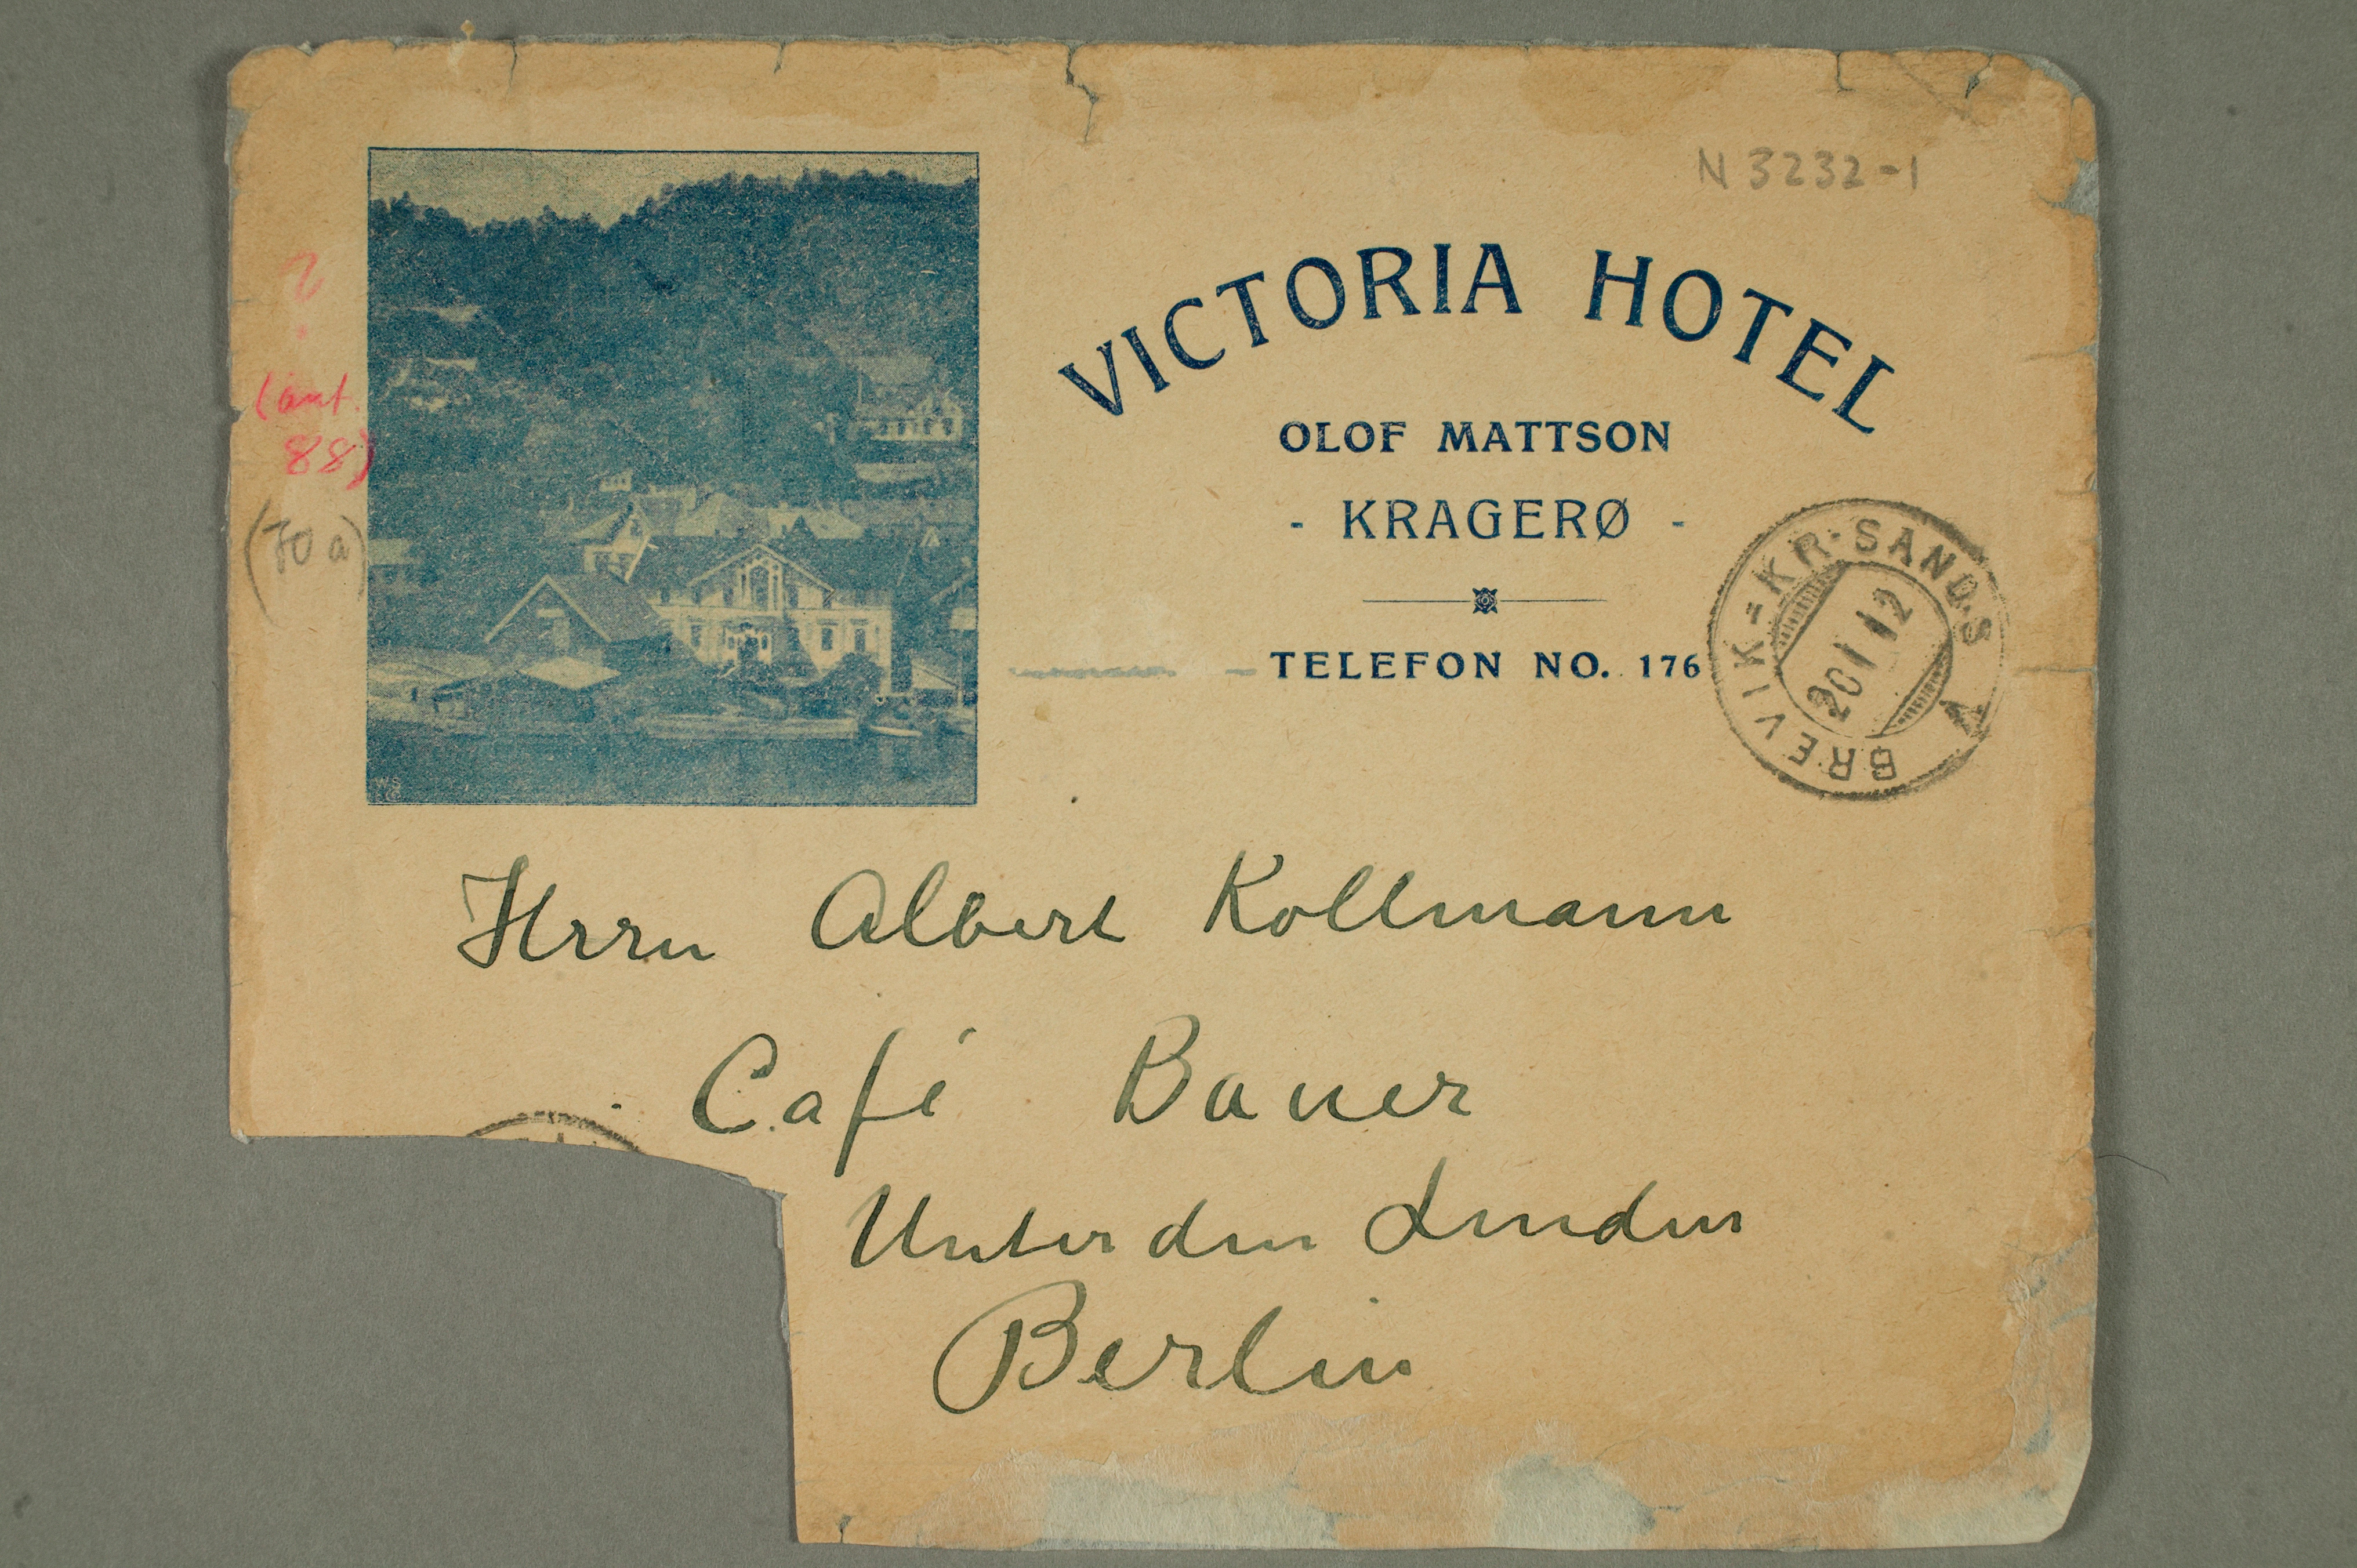 N 3232-1
VICTORIA HOTEL
OLOF MATTSON
- KRAGERØ -
TELEFON NO. 176
BREVIK=KR·SANDS A
20 I 12
?
(ant.
88)
(70 a)
Herrn Albert Kollmann
Café Bauer
Unter den Linden
Berlin